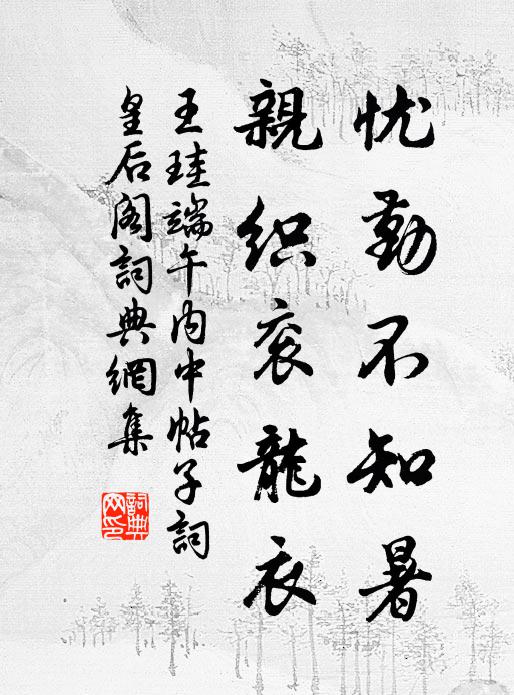 忧勤不知暑
親織衮龍衣
王珪端午内中帖子詞
皇后阁詞典網集
詞典网印